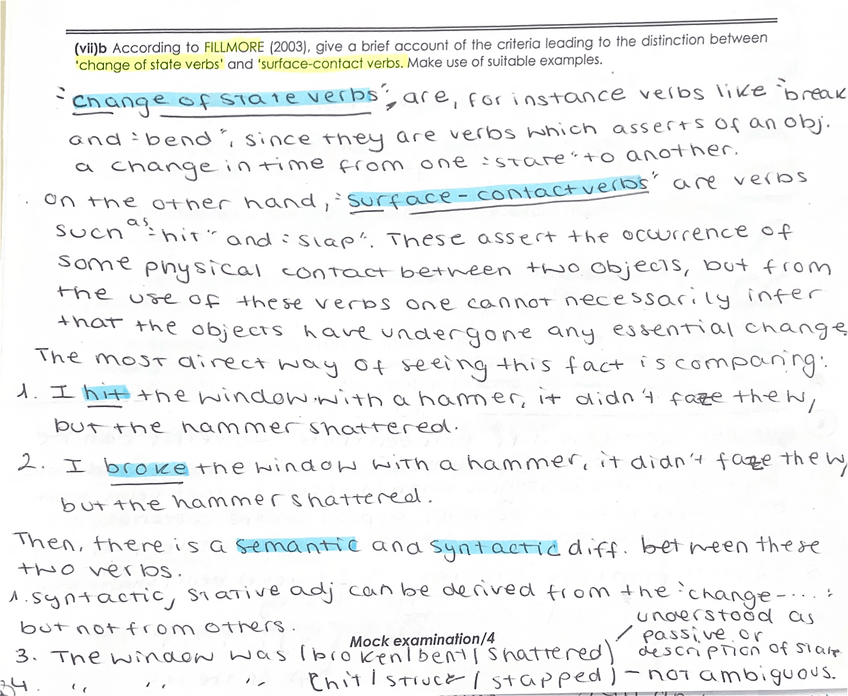 (vii)b According to FILLMORE (2003), give a brief account of the criteria leading to the distinction between
'change of state verbs' and 'surface-contact verbs. Make use of suitable examples.
"change of state verbs", are, for instance verbs like "break
and "bend", since they are verbs which asserts of an obj.
a change in time from one "state" to another.
on the other hand, "surface-contact verbs" are verbs
such as "hit" and "slap". These assert the occurrence of
some physical contact between two objects, but from
the use of these verbs one cannot necessarily infer
that the objects have undergone any essential change
The most direct way of seeing this fact is comparing:
1. I hit the window with a hamer, it didn't faze the w,
but the hammer shattered.
2. I broke the window with a hammer, it didn't faze the w,
but the hammer shattered.
Then, there is a semantic and syntactic diff. between these
two verbs.
1. syntactic, stative adj can be derived from the "change-....:
but not from others.
Mock examination/4
3. The window was (broken/bent/shattered)
understood as
passive or
description of state
34. " " " [hit/struck/stapped) - not ambiguous.